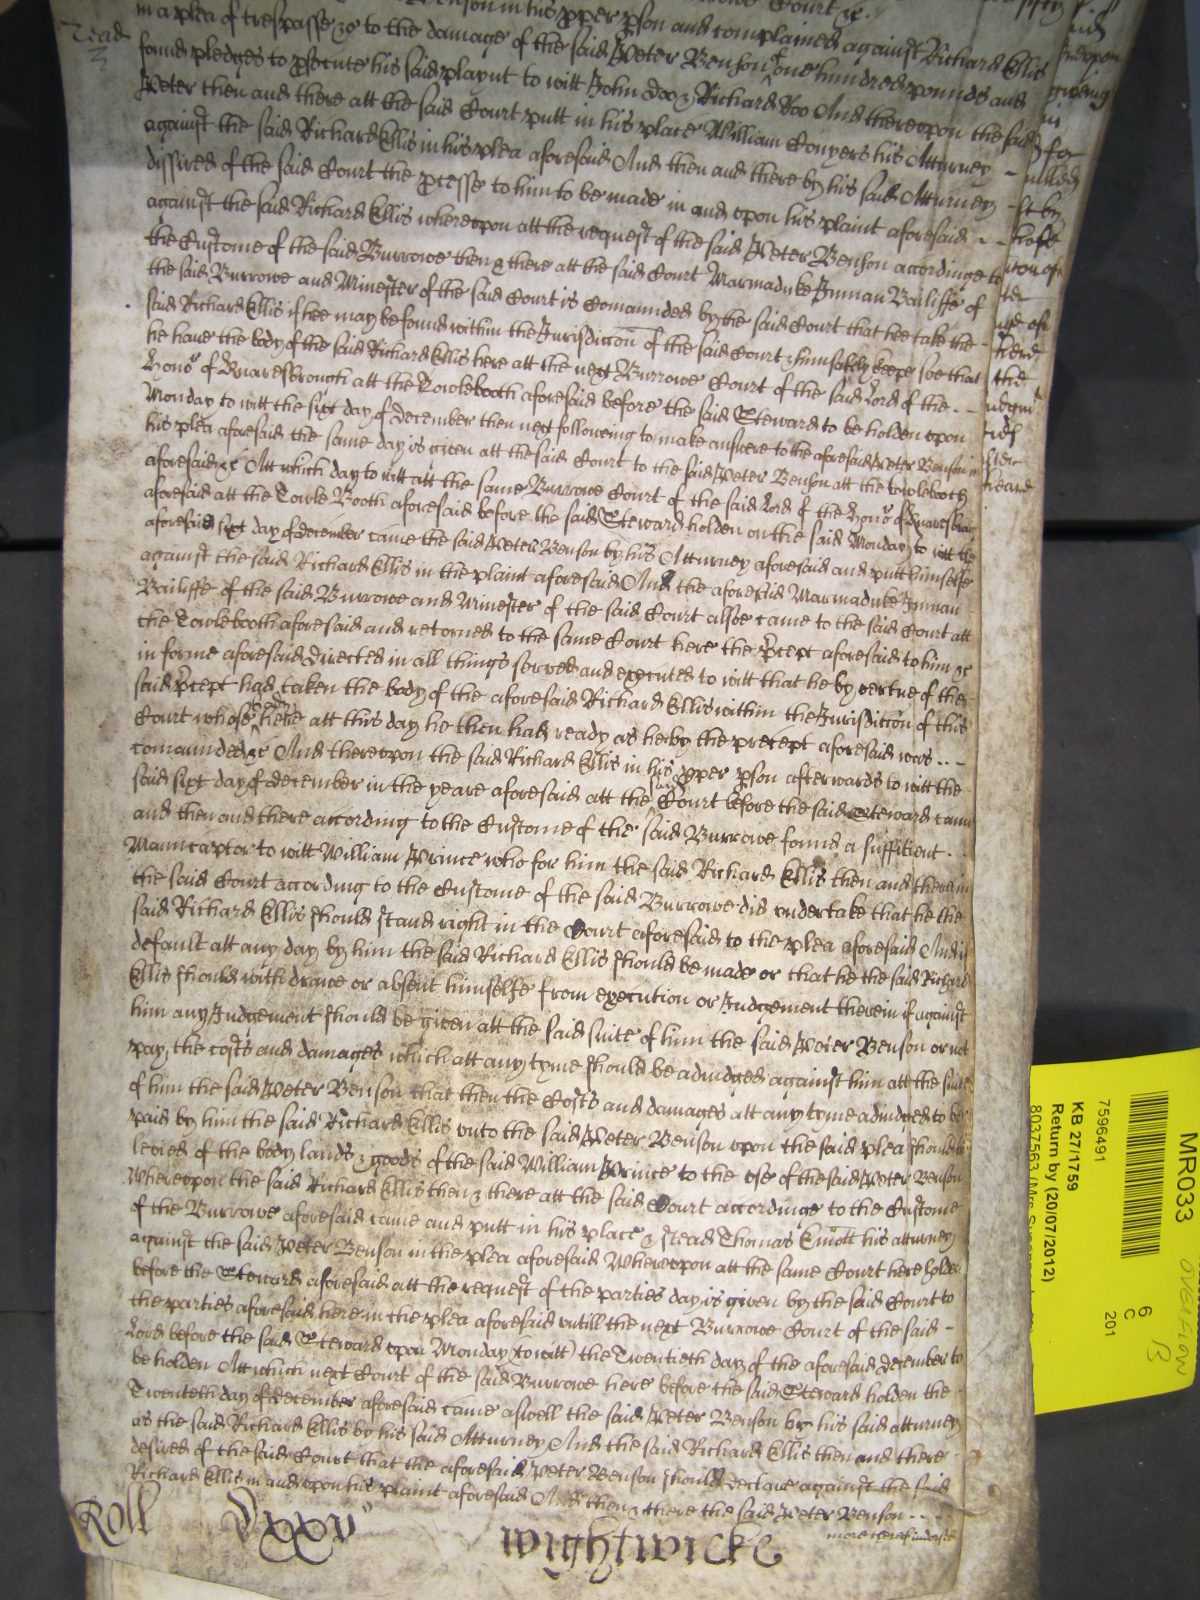 Benson in his pper pson and complained against Richard Ellis
in a plea of trespasse &c to the damage of the said Peter Benson one hundred pounds and
found pledges to psecute his said playnt to witt John Doo & Richard Roo And thereupon the said
Peter then and there att the said Court putt in his place William Conyers his Atturney
against the said Richard Ellis in his plea aforesaid And then and there by his said Atturney
dissired of the said Court the pcesse to him to be made in and upon his plaint aforesaid
against the said Richard Ellis whereupon att the request of the said Peter Benson accordinge to
the Custome of the said Burrowe then & there att the said Court Marmaduke Inman Bailiffe of
the said Burrowe and Minester of the said Court is Comannded by the said Court that hee take the
said Richard Ellis if hee may be found within the Jurisdiccon of the said Court & him safely keepe soe that
he have the body of the said Richard Ellis here att the next Burrowe Court of the said Lord of the
honor of Knaresbrough att the Towlebooth aforesaid before the said Steward to be holden upon
Monday to witt the sixt day of December then next following to make answere to the aforesaid Peter Benson in
his plea aforesaid the same day is given att the said Court to the said Peter Benson att the towlebooth
aforesaid &c Att which day to witt att the same Burrowe Court of the said Lord of the honor of Knaresbrou
aforesaid att the Towle Booth aforesaid before the said Steward holden on the said Monday to witt the
aforesaid sixt day of december came the said Peter Benson by his Atturney aforesaid and putt himselfe
against the said Richard Ellis in the plaint aforesaid And the aforesaid Marmaduke Inman
Bailiffe of the said Burrowe and Minester of the said Court alsoe came to the said Court att
the Towlebooth aforesaid and retorned to the same Court here the pcept aforesaid to him &c
in forme aforesaid directed in all things served and executed to witt that he by vertue of the
said pcept had taken the body of the aforesaid Richard Ellis within the Jurisdiccon of this
Court whose body here att this day he then had ready as hee by the precept aforesaid was
comannded &c And thereupon the said Richard Ellis in his pper pson afterwards to witt the
said sixt day of december in the yeare aforesaid att the said Court before the said Steward came
and then and there according to the Custome of the said Burrowe found a suffitient
Manucaptor to witt William Prince who for him the said Richard Ellis then and there in
the said Court according to the Custome of the said Burrowe did undertake that he the
said Richard Ellis should stand right in the Court aforesaid to the plea aforesaid And if
default att any day by him the said Richard Ellis should be made or that he the said Richard
Ellis should withdrawe or absent himselfe from execution or Judgement therein if against
him any Judgement should be given att the said suite of him the said Peter Benson or not
pay the costs and damages which att any tyme should be adiudged against him att the suite
of him the said Peter Benson that then the Costs and damages att any tyme adiudged to be
paid by him the said Richard Ellis unto the said Peter Benson upon the said plea should be
levied of the body lands & goods of the said William Prince to the use of the said Peter Benson
Whereupon the said Richard Ellis then & there att the said Court accordinge to the Custome
of the Burrowe aforesaid came and putt in his place & stead Thomas his atturney
against the said Peter Benson in the plea aforesaid Whereupon att the same Court here holden
before the Steward aforesaid att the request of the parties day is given by the said Court to
the parties aforesaid here in the plea aforesaid untill the next Burrowe Court of the said
Lord before the said Steward upon Monday (to witt) the Twentieth day of the aforesaid december to
be holden Att which next Court of the said Burrowe here before the said Steward holden the
Twenteth day of december aforesaid came aswell the said Peter Benson by his said atturney
as the said Richard Ellis by his said Atturney And the said Richard Ellis then and there
desired of the said Court that the aforesaid Peter Benson should declare against the said
Richard Ellis in and upon his plaint aforesaid And then & there the said Peter Benson
more thereof indorsed
Roll Dxxv
Wightwicke
MR033
7596491
KB 27/1759
Return by (20/07/2012)
6
C
201